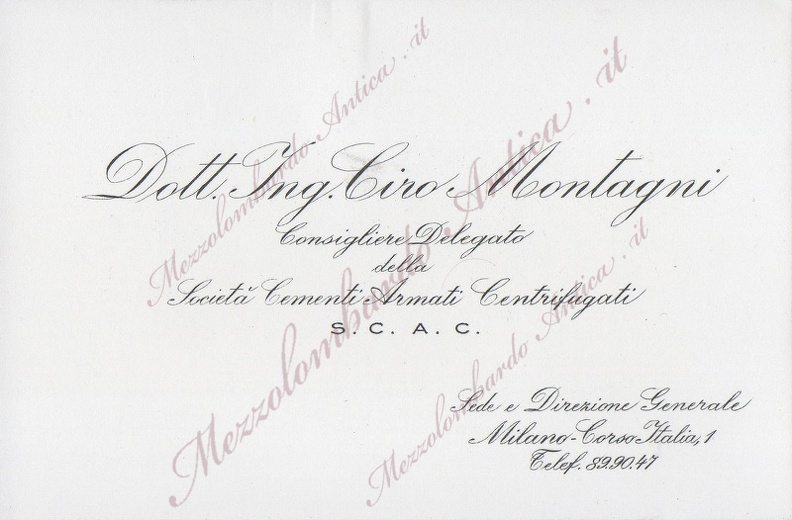 Dott. Ing. Ciro Montagni
Consigliere Delegato
della
Società Cementi Armati Centrifugati
S. C. A. C.
Sede e Direzione Generale
Milano - Corso Italia, 1
Telef. 89.90.47
Mezzolombardo Antica . it
Mezzolombardo Antica . it
Mezzolombardo Antica . it